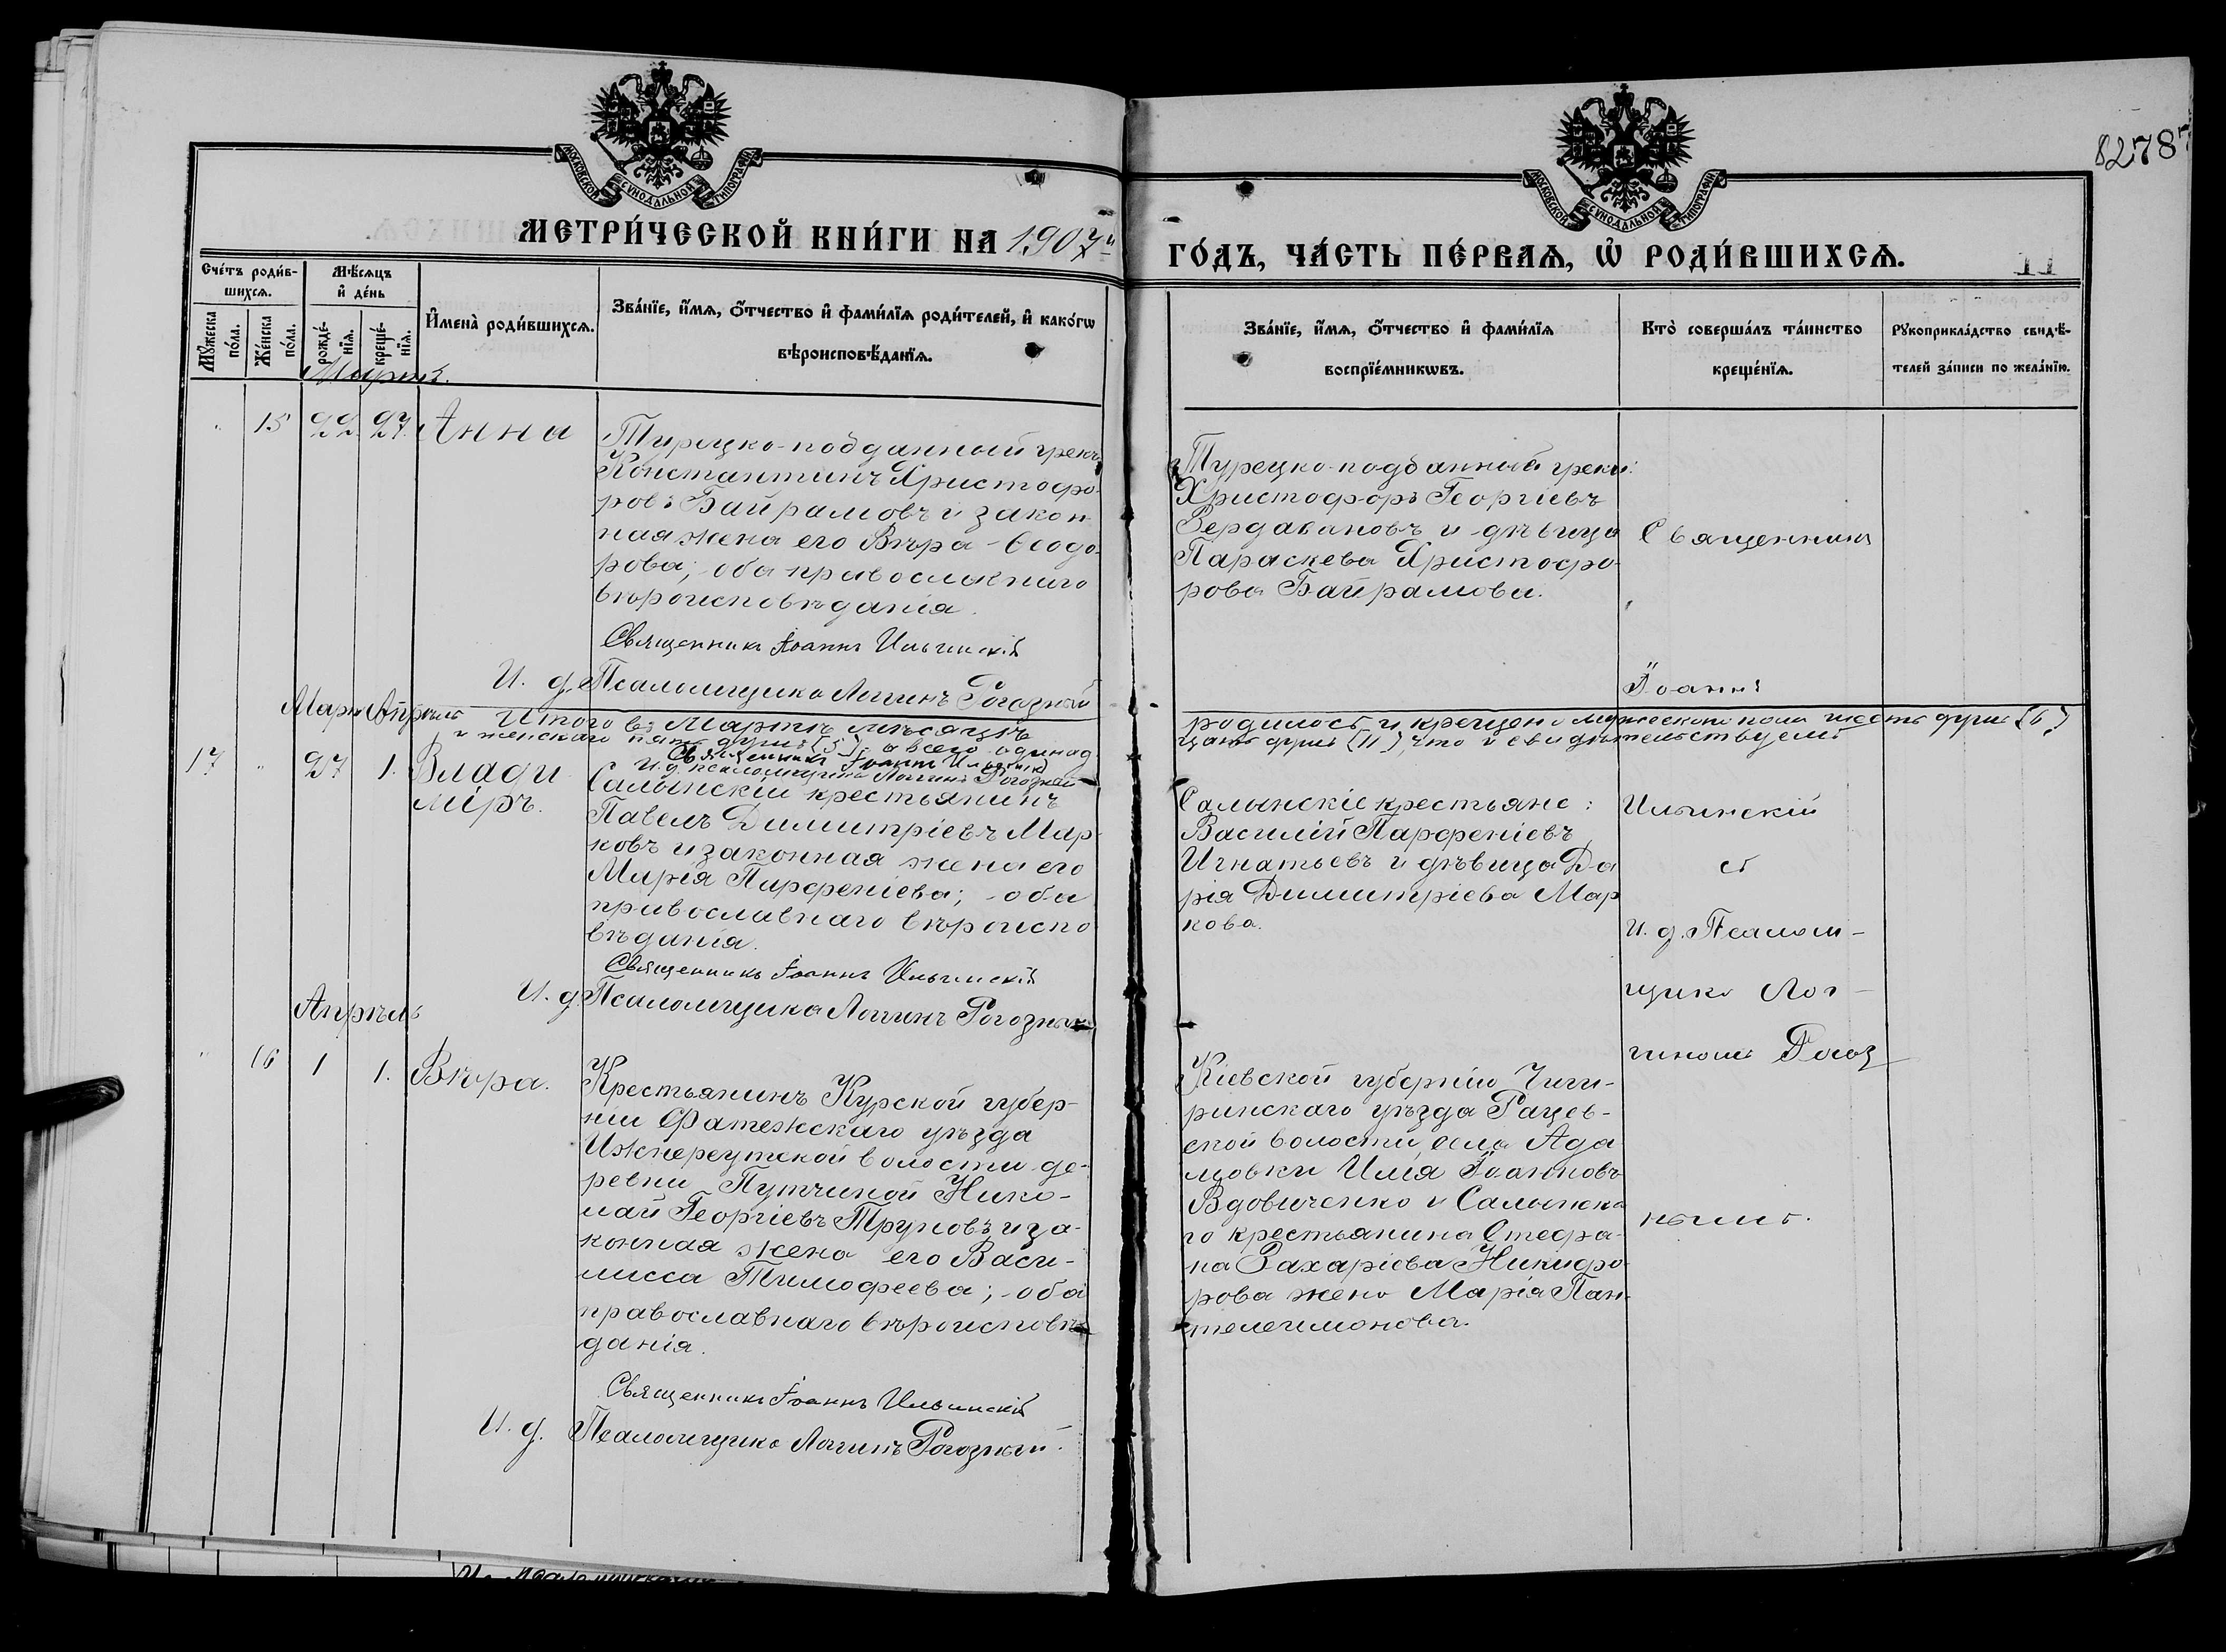 82787
МОСКОВСКОЙ СѴНОДАЛЬНОЙ ТИПОГРАФІИ
МОСКОВСКОЙ СѴНОДАЛЬНОЙ ТИПОГРАФІИ
МЕТРИ́ЧЕСКОЙ КНИ́ГИ НА 1907й
ГО́ДЪ, ЧА́СТЬ ПЕ́РВАѦ, Ѡ РОДИ́ВШИХСѦ.
11
Сче́тъ роди́в-
шихсѧ.
Мꙋ́жеска по́ла.
Же́нска по́ла.
Мѣ́сѧцъ
и҆ де́нь
рожде́-
нїѧ.
креще́-
нїѧ.
И҆мена̀ роди́вшихсѧ.
Зва́нїе, и҆́мѧ, ѻ҆́тчество и҆ фами́лїѧ роди́телей, и҆ како́гѡ
вѣроисповѣ́данїѧ.
Зва́нїе, и҆́мѧ, ѻ҆́тчество и҆ фами́лїѧ
воспрїе́мникѡвъ.
Кто̀ соверша́лъ та́инство
креще́нїѧ.
Рꙋкоприкла́дство свидѣ́-
телей за́писи по жела́нїю.
Мартъ.
" 15 22 27. Анна
Турецко-подданный грекъ
Константинъ Христофо-
ровъ Байрамовъ и закон
ная жена его Вѣра Ѳеодо-
рова; оба православнаго
вѣроисповѣданія.
Священникъ Іоаннъ Ильинскій
И. д. Псаломщика Логгинъ Рогозный
Турецко-подданный греки:
Христофоръ Георгіевъ
Вердавановъ и дѣвица
Параскева Христофо-
рова Байрамова.
Священникъ
Іоаннъ
Итого въ Мартѣ мѣсяцѣ
родилось и крещено мужескаго пола шесть душъ (6)
и женскаго пять душъ (5), а всего одинад
цать душъ (11), что и свидѣтельствуемъ
Священникъ Іоаннъ Ильинскій
И. д. псаломщика Логгинъ Рогозный
Мартъ Апрѣль
17 " 27 1. Влади
міръ.
Салынскій крестьянинъ
Павелъ Димитріевъ Мар-
ковъ и законная жена его
Марія Парфеніева; оба
православнаго вѣроиспо
вѣданія.
Священникъ Іоаннъ Ильинскій
И. д. Псаломщика Логгинъ Рогозный
Салынскіе крестьяне:
Василій Парфеніевъ
Игнатьевъ и дѣвица Да
рія Димитріева Мар
кова.
Ильинскій
съ
И. д. Псалом-
щика Лог-
гиномъ Рогоз
нымъ.
Апрѣль
" 16 1 1. Вѣра.
Крестьянинъ Курской губер-
ніи Фатежскаго уѣзда
Нижнереутской волости де-
ревни Путчиной Нико-
лай Георгіевъ Труновъ и за-
конная жена его Васи-
лисса Тимофеева; оба
православнаго вѣроисповѣ
данія.
Священникъ Іоаннъ Ильинскій
И. д. Псаломщика Логгинъ Рогозный.
Кіевской губерніи Чиги-
ринскаго уѣзда Рацев-
ской волости, села Ада
мовки Илія Іоанновъ
Вдовиченко и Салынска
го крестьянина Стефа-
на Захаріева Никифо
рова жена Марія Пан-
телеимонова.